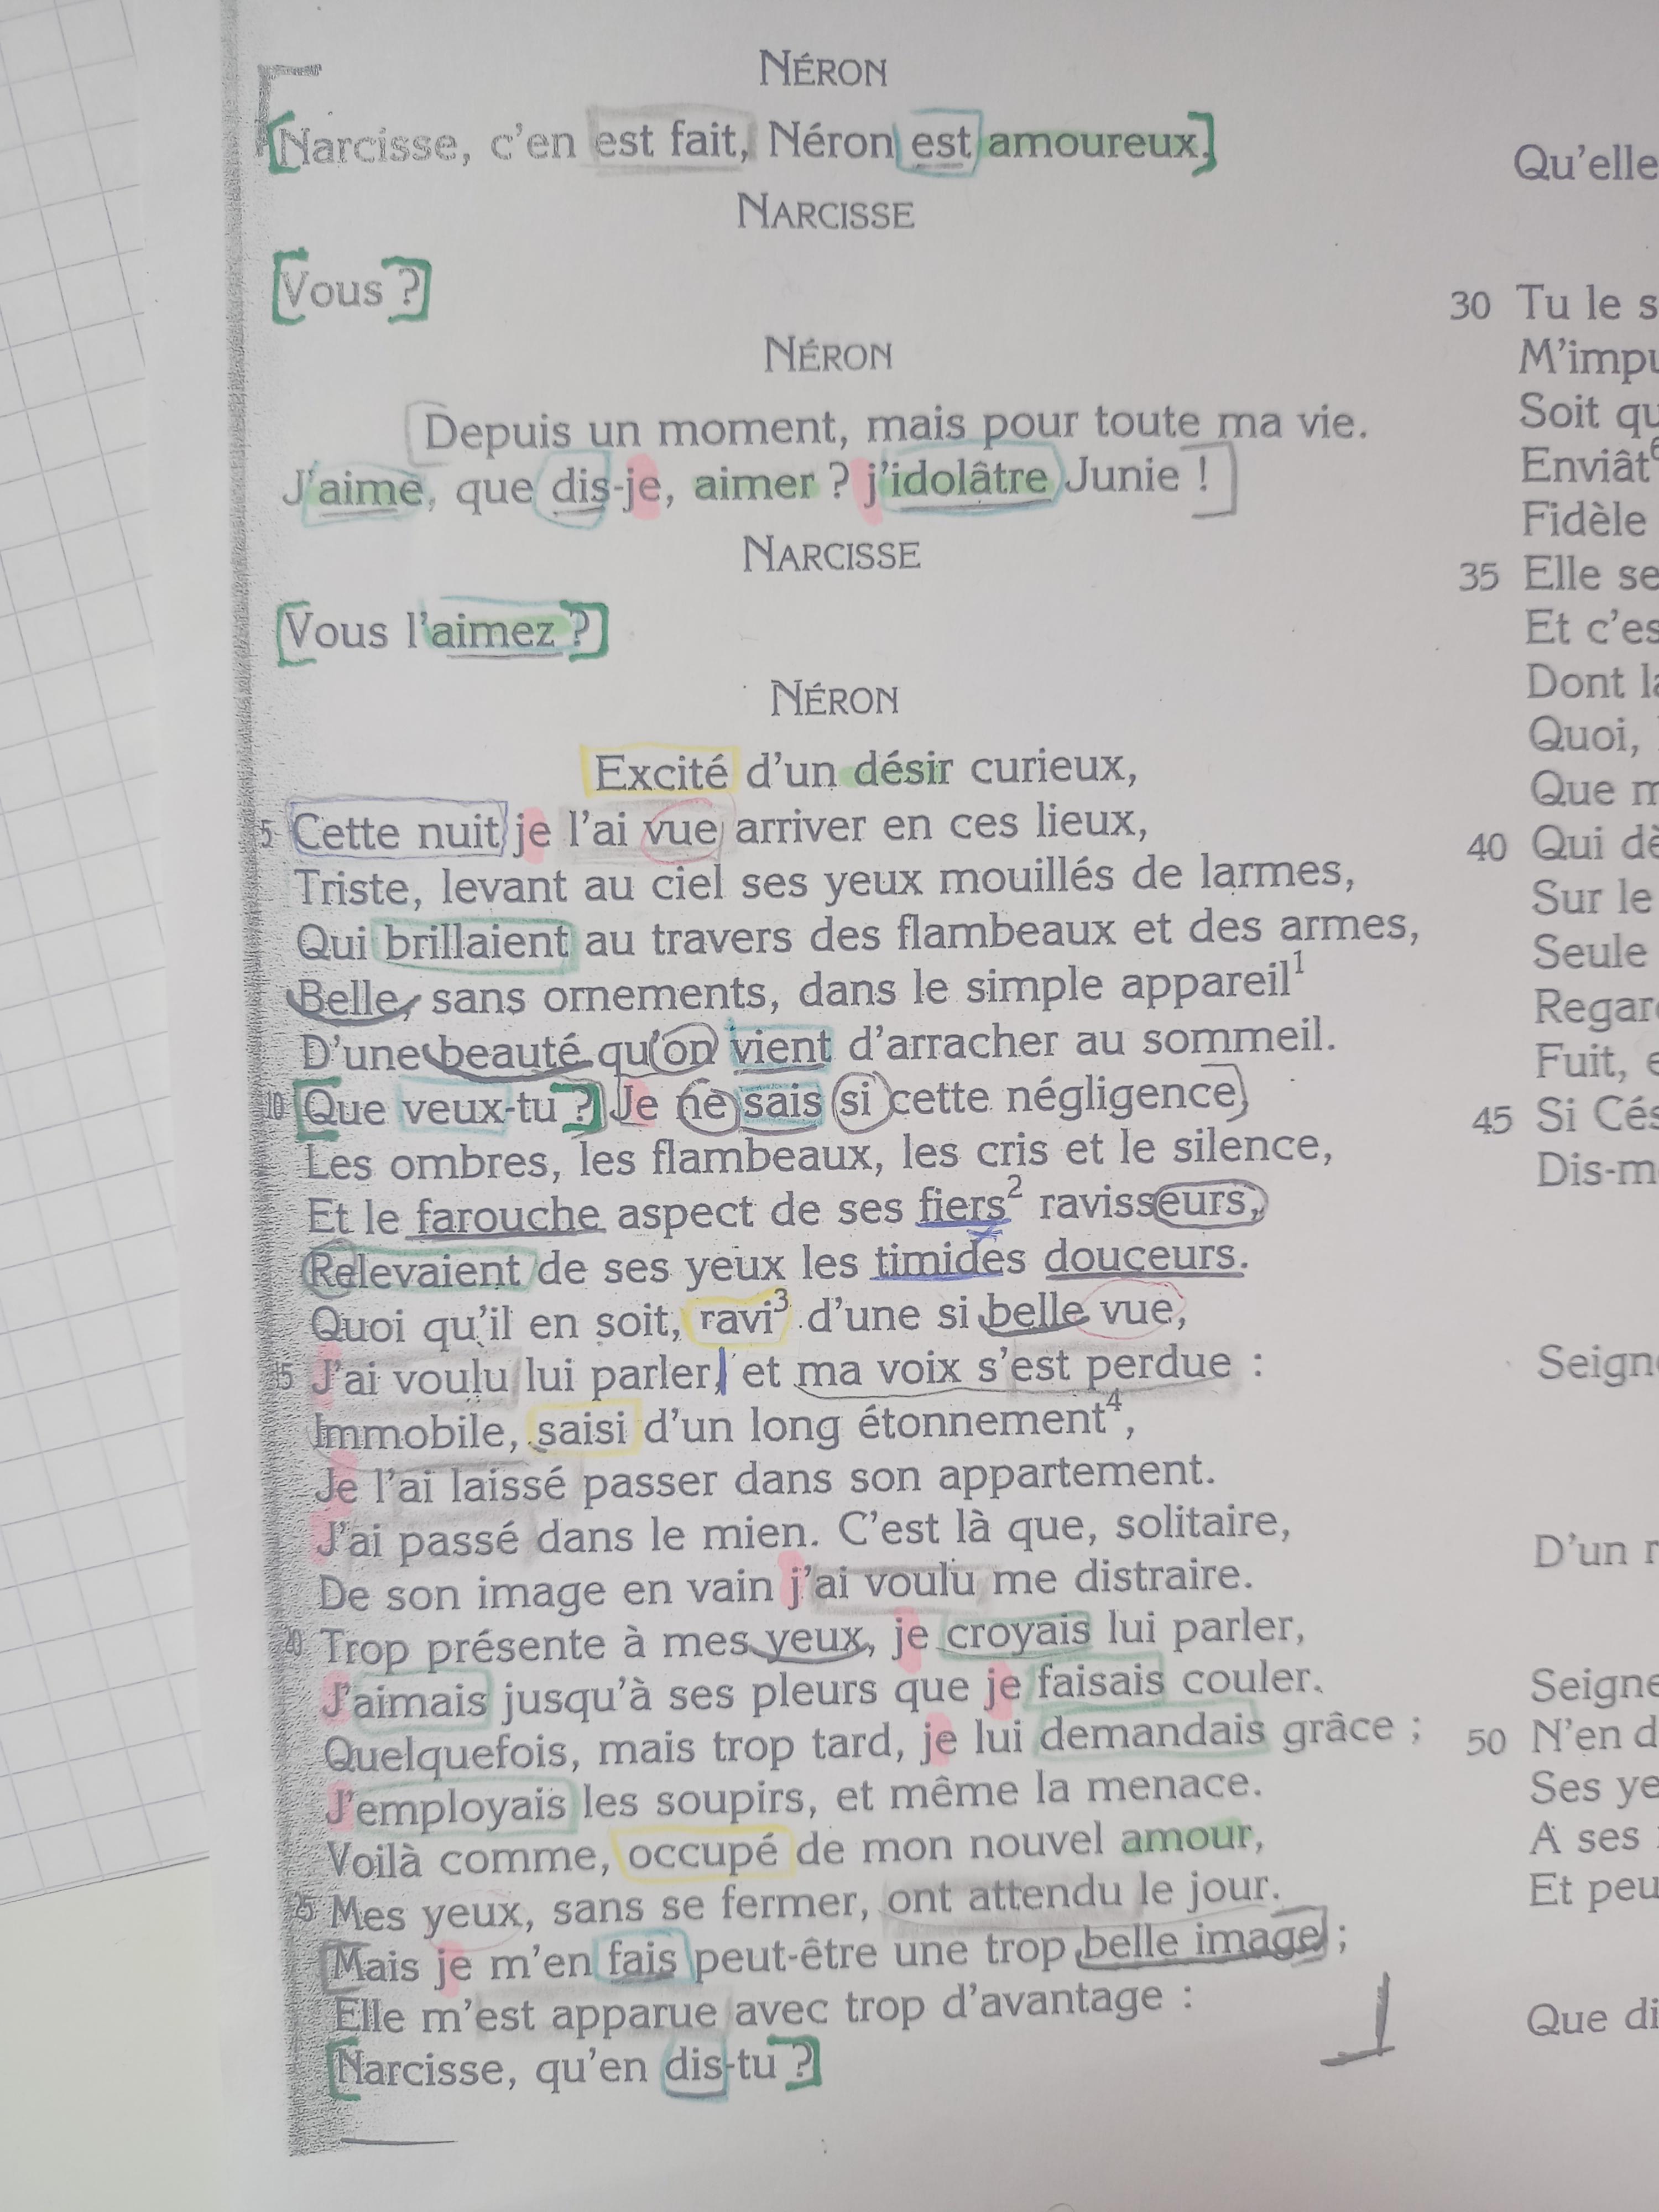 NÉRON
Narcisse, c'en est fait, Néron est amoureux.
NARCISSE
Vous ?
NÉRON
Depuis un moment, mais pour toute ma vie.
J'aime, que dis-je, aimer ? j'idolâtre Junie !
NARCISSE
Vous l'aimez ?
NÉRON
Excité d'un désir curieux,
5 Cette nuit je l'ai vue arriver en ces lieux,
Triste, levant au ciel ses yeux mouillés de larmes,
Qui brillaient au travers des flambeaux et des armes,
Belle, sans ornements, dans le simple appareil1
D'une beauté qu'on vient d'arracher au sommeil.
10 Que veux-tu ? Je ne sais si cette négligence,
Les ombres, les flambeaux, les cris et le silence,
Et le farouche aspect de ses fiers2 ravisseurs,
Relevaient de ses yeux les timides douceurs.
Quoi qu'il en soit, ravi3 d'une si belle vue,
15 J'ai voulu lui parler, et ma voix s'est perdue :
Immobile, saisi d'un long étonnement4,
Je l'ai laissé passer dans son appartement.
J'ai passé dans le mien. C'est là que, solitaire,
De son image en vain j'ai voulu me distraire.
20 Trop présente à mes yeux, je croyais lui parler,
J'aimais jusqu'à ses pleurs que je faisais couler.
Quelquefois, mais trop tard, je lui demandais grâce ;
J'employais les soupirs, et même la menace.
Voilà comme, occupé de mon nouvel amour,
25 Mes yeux, sans se fermer, ont attendu le jour.
Mais je m'en fais peut-être une trop belle image ;
Elle m'est apparue avec trop d'avantage :
Narcisse, qu'en dis-tu ?
Qu'elle
30 Tu le
M'imp
Soit qu
Enviât6
Fidèle
35 Elle se
Et c'es
Dont
Quoi,
Que
40 Qui dè
Sur le
Seule
Regar
Fuit,
45 Si Cés
Dis-m
Seign
D'un
Seigne
50 N'en d
Ses ye
A ses
Et peu
Que di